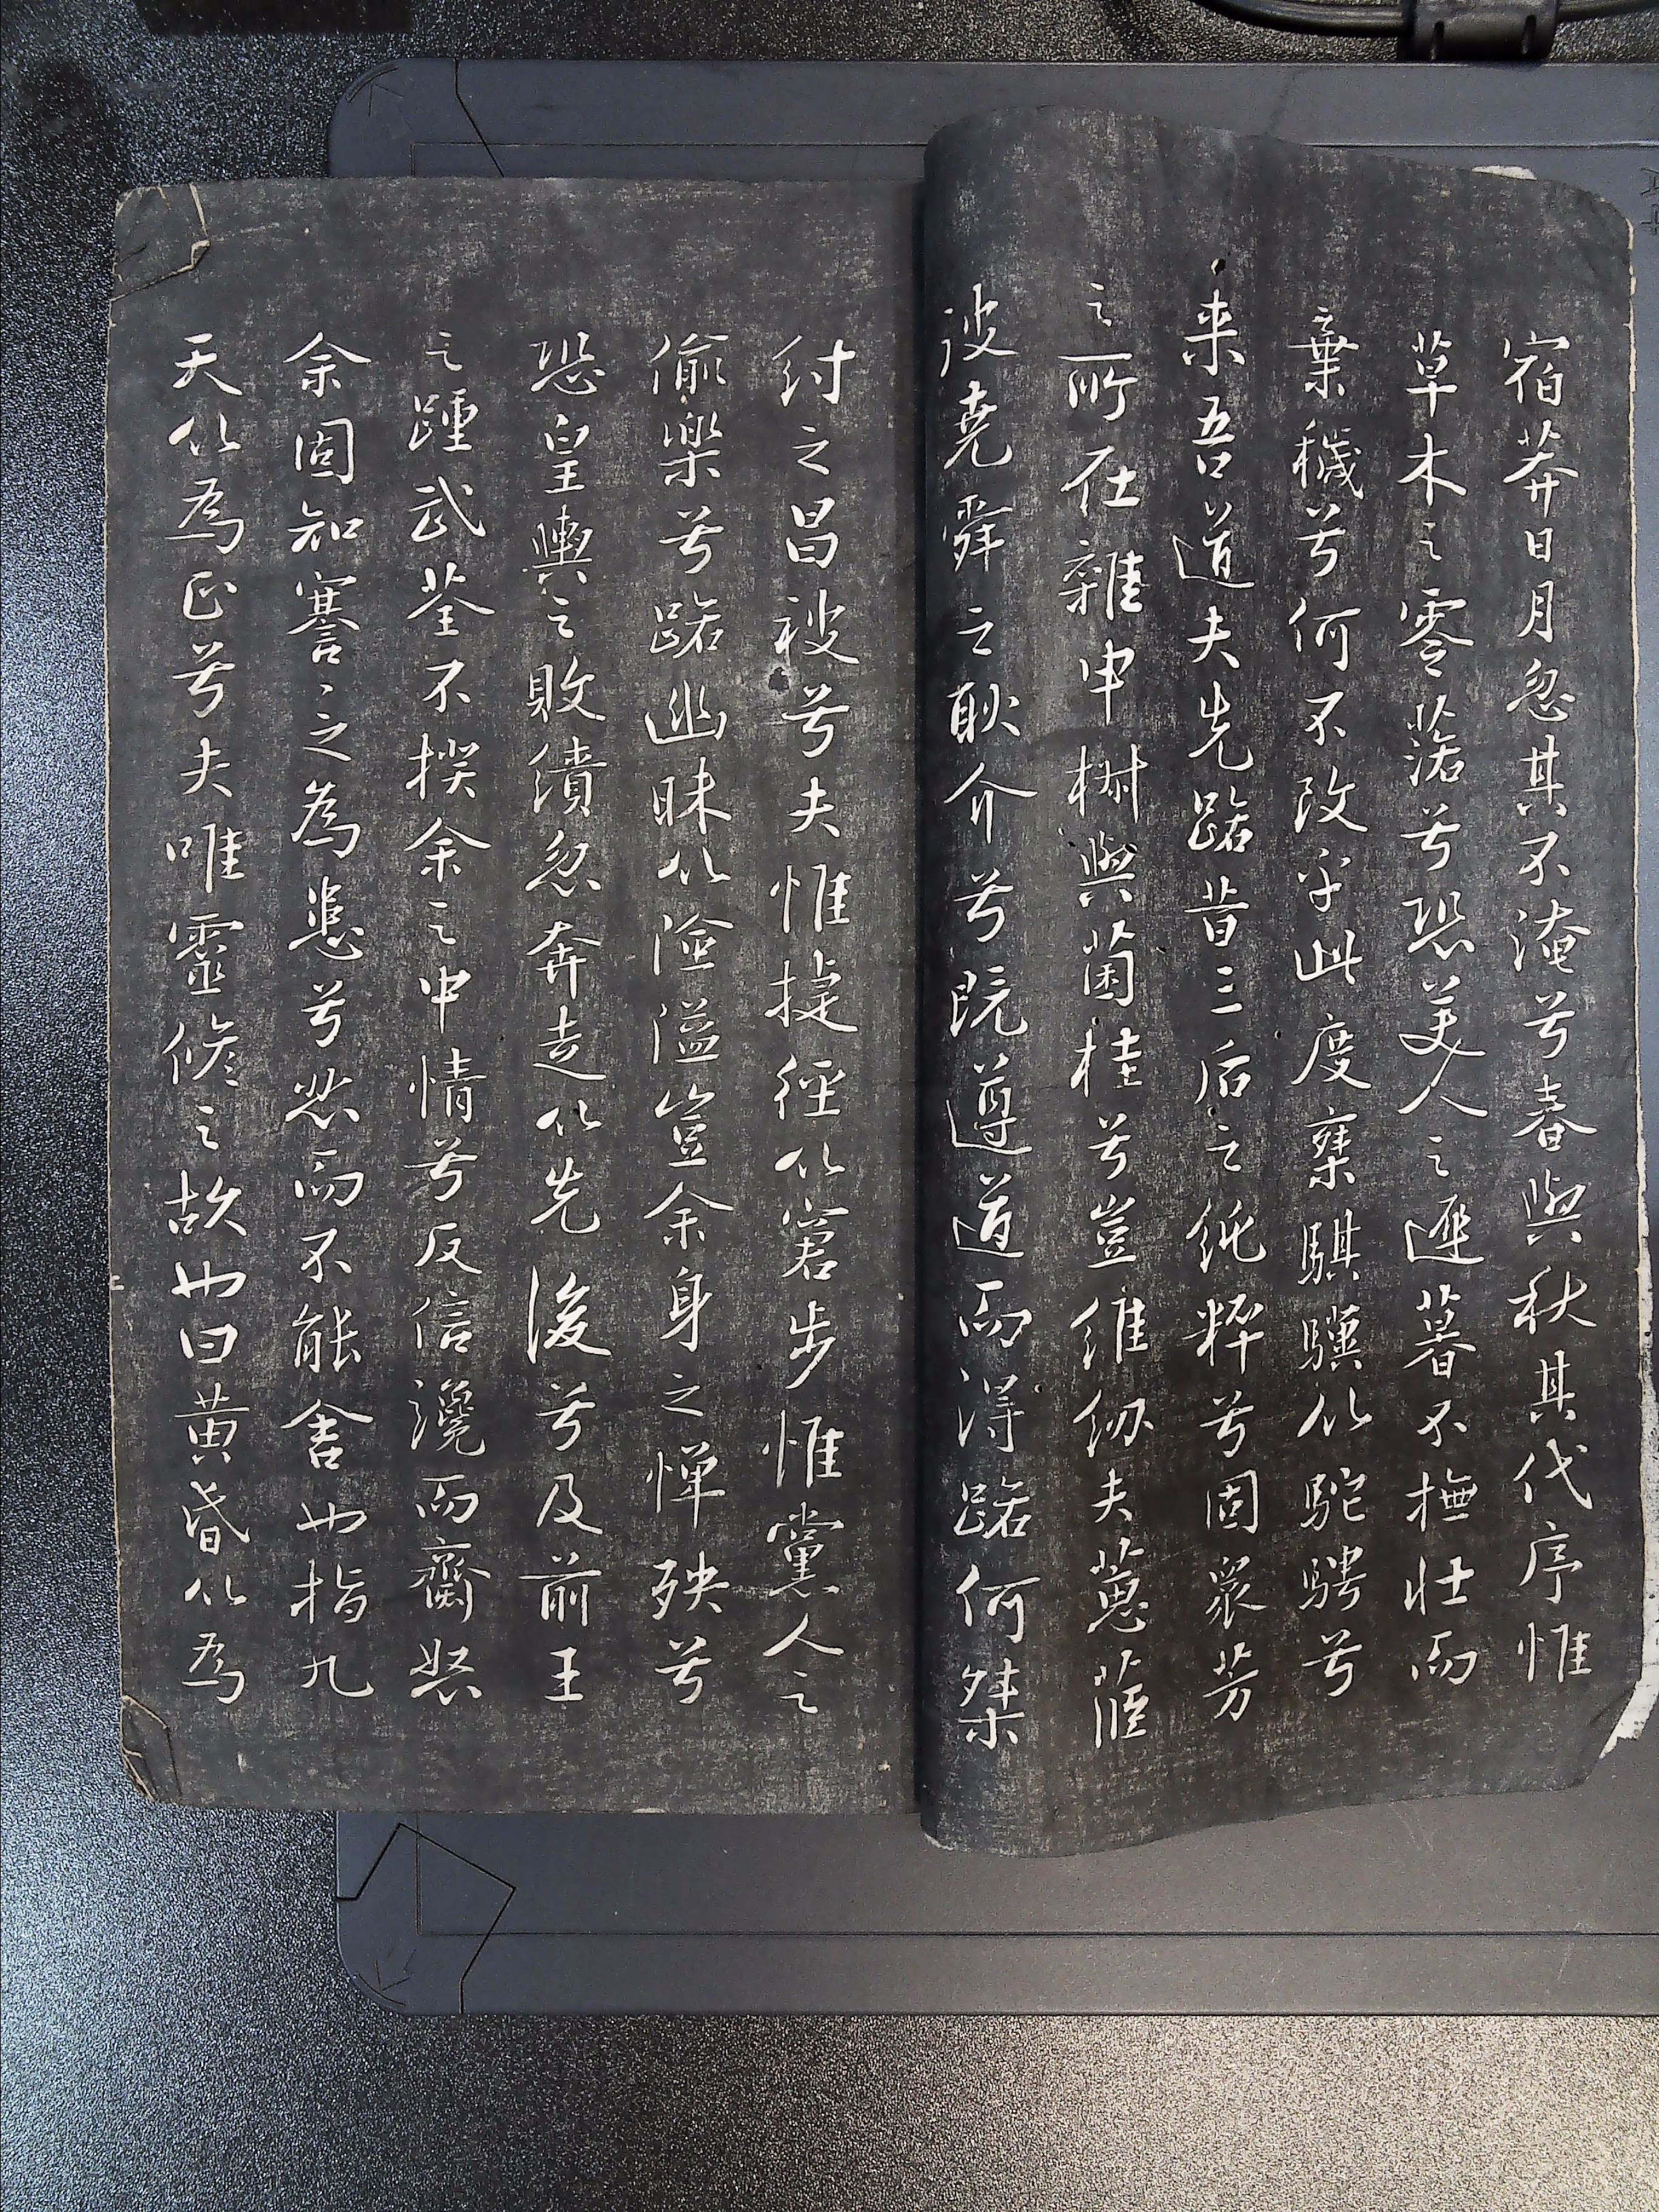 宿莽日月忽其不淹兮春與秋其代序惟
草木之零落兮恐美人之遲暮不撫壯而
棄穢兮何不改乎此度棄騏驥以駝騁兮
来吾道夫先路昔三后之純粹兮固衆芳
之所在雜申椒與菌桂兮豈維紉夫蕙茝
彼堯舜之耿介兮既遵道而得路何桀
紂之昌被兮夫惟捷徑以窘步惟黨人之
偷樂兮路幽昧以險隘豈余身之憚殃兮
恐皇輿之敗績忽奔走以先後兮及前王
之踵武荃不揆余之中情兮反信讒而齌怒
余固知謇〻之為患兮忍而不能舍也指九
天以為正兮夫唯靈脩之故也曰黄昏以為